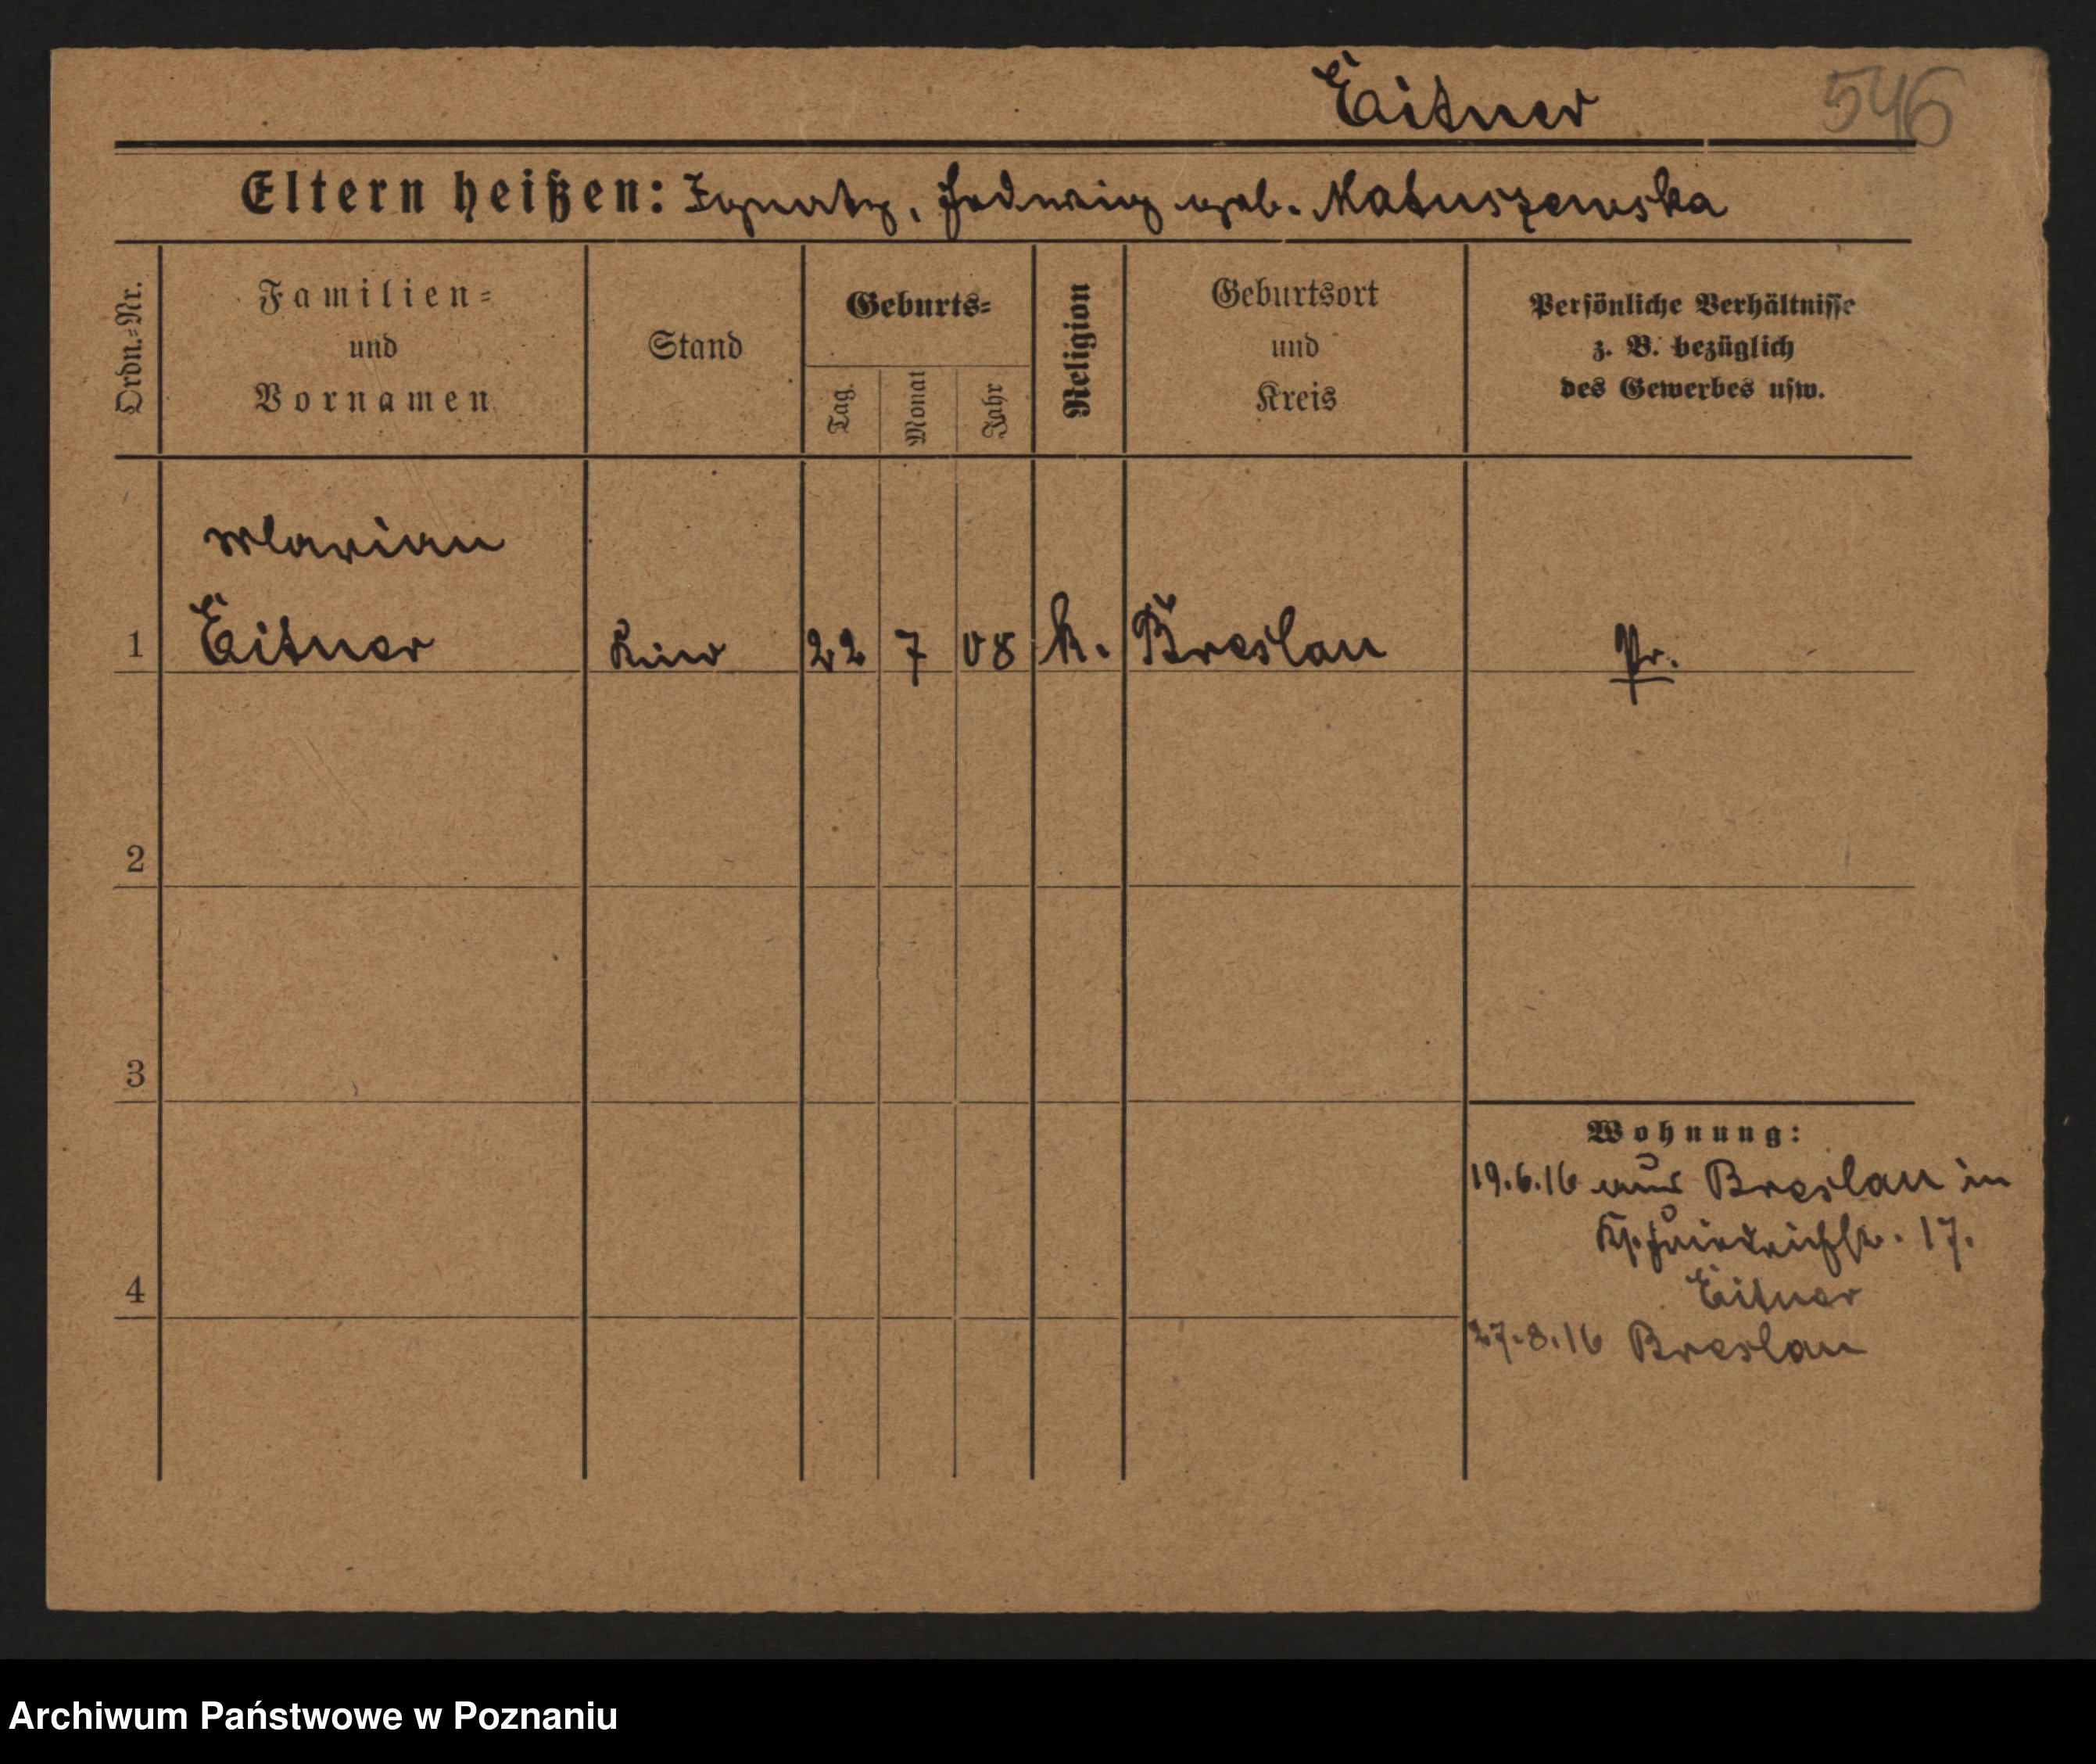 Eitner
546
Eltern heißen: Ignatz, Hedwig geb. Matuszewska
Ordn.=Nr.
Familien=
und
Vornamen
Stand
Geburts=
Tag.
Monat
Jahr
Religion
Geburtsort
und
Kreis
Persönliche Verhältnisse
z. B. bezüglich
des Gewerbes usw.
Marian
1 Eitner Kind 22 7 08 k. Breslau Pr.
2
3
4
Wohnung:
19.6.16 aus Breslau in
friedrichstr. 17.
Eitner
27.8.16 Breslau
Archiwum Państwowe w Poznaniu